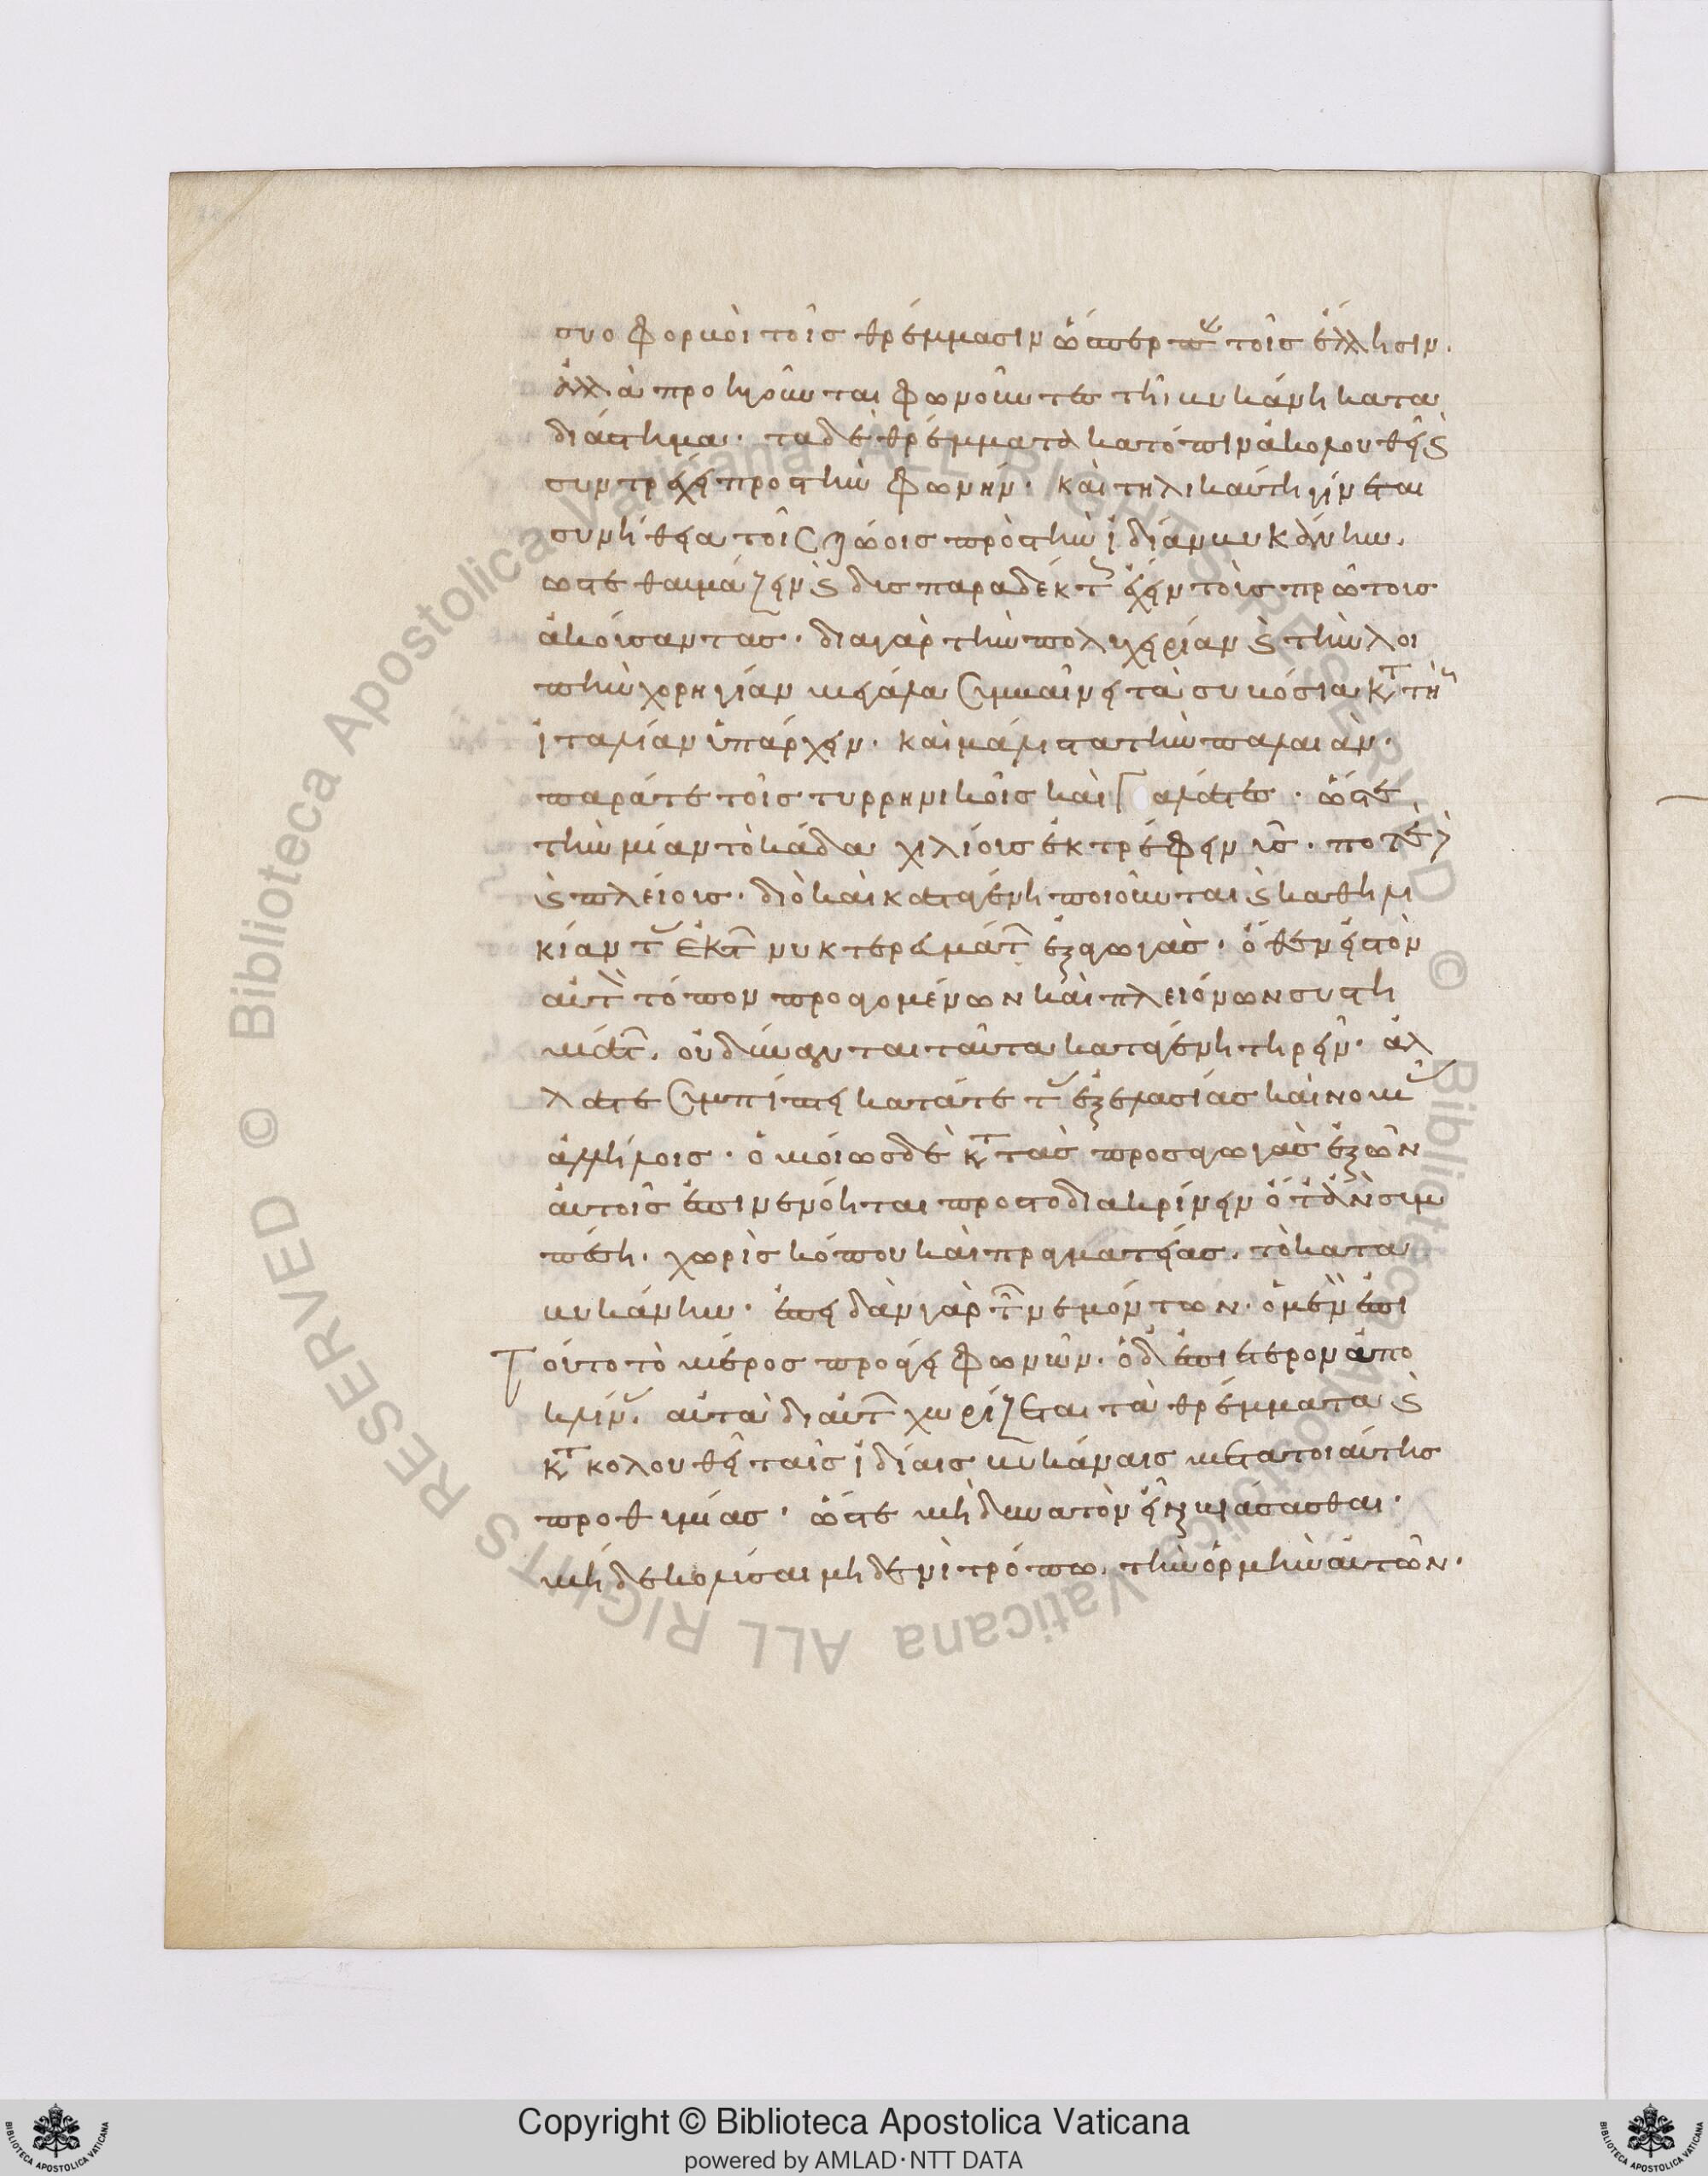 συοφορβοὶ τοῖς θρέμμασιν ὥσπερ π τοῖς ἕλλησιν.
ἀλλὰ προηγοῦνται φωνοῦντες τῆ βυκάνη κατα
διάστημα· τα δὲ θρέμματα κατόπιν ἀκολουθεῖ ϛ
συντρέχει προς τὴν φωνήν· καὶ τηλικαύτη γίνεται
συνήθεια τοῖς ζώοις πρὸς τὴν ἰδίαν βυκάνην.
ωστε θαυμάζειν ϛ δυσπαραδέκτ ἔχειν τοὺς πρώτους
ἀκούσαντας· δια γὰρ τὴν πολυχειρίαν ϛ τὴν λοι
πὴν χορηγίαν μεγάλα συμβαίνει τὰ συβόσια κτ τὴν
ἰταλίαν ὑπάρχειν· καὶ μάλιστα τὴν παλαιάν·
παρά τε τοῖς τυρρηνικοῖς καὶ Γαλάταις· ὥστε
τὴν μίαν τοκάδα χιλίους ἐκτρέφειν ὗς· ποτὲ
ϛ πλείους· διὸ καὶ κατα γένη ποιοῦνται ϛ καθηλι
κίαν τ ἐκτ νυκτερευμάτ ἐξαγωγὰς· ὅθεν εἰς τὸν
αὐτὸν τόπον προαγομένων καὶ πλειόνων συστη
μάτ. οὐ δύνανται ταῦτα κατα γένη τηρεῖν· ἀλ
λά τε συμπίπτει κατά τε τ ἐξελασίας καὶ νομ
ἀλλήλοις· ὁμοίως δὲ κτ τὰς προσαγωγὰς ἐξ ὧν
αὐτοῖς ἐπινενόηται προς το διακρίνειν ὅτ ἂν συμ
πέση. χωρὶς κόπου καὶ πραγματείας. τὸ κατα
βυκάνην· ἐπειδὰν γὰρ τ νεμόντων· ὁ μὲν ἐπι
τοῦτο τὸ μέρος προάγει φωνῶν· ὁ δ ἐφ ἕτερον ἀπο
κλίν. αὐτὰ δι αὑτ χωρίζεται τὰ θρέμματα ϛ
κτκολουθεῖ ταῖς ἰδίαις βυκάναις μετα τοιαύτης
προθυμίας· ὥστε μὴ δυνατὸν εἶν βιάσασθαι·
μηδὲ κολῦσαι μηδενὶ τρόπω τὴν ὁρμὴν αὐτῶν·
Copyright © Biblioteca Apostolica Vaticana
powered by AMLAD·NTT DATA